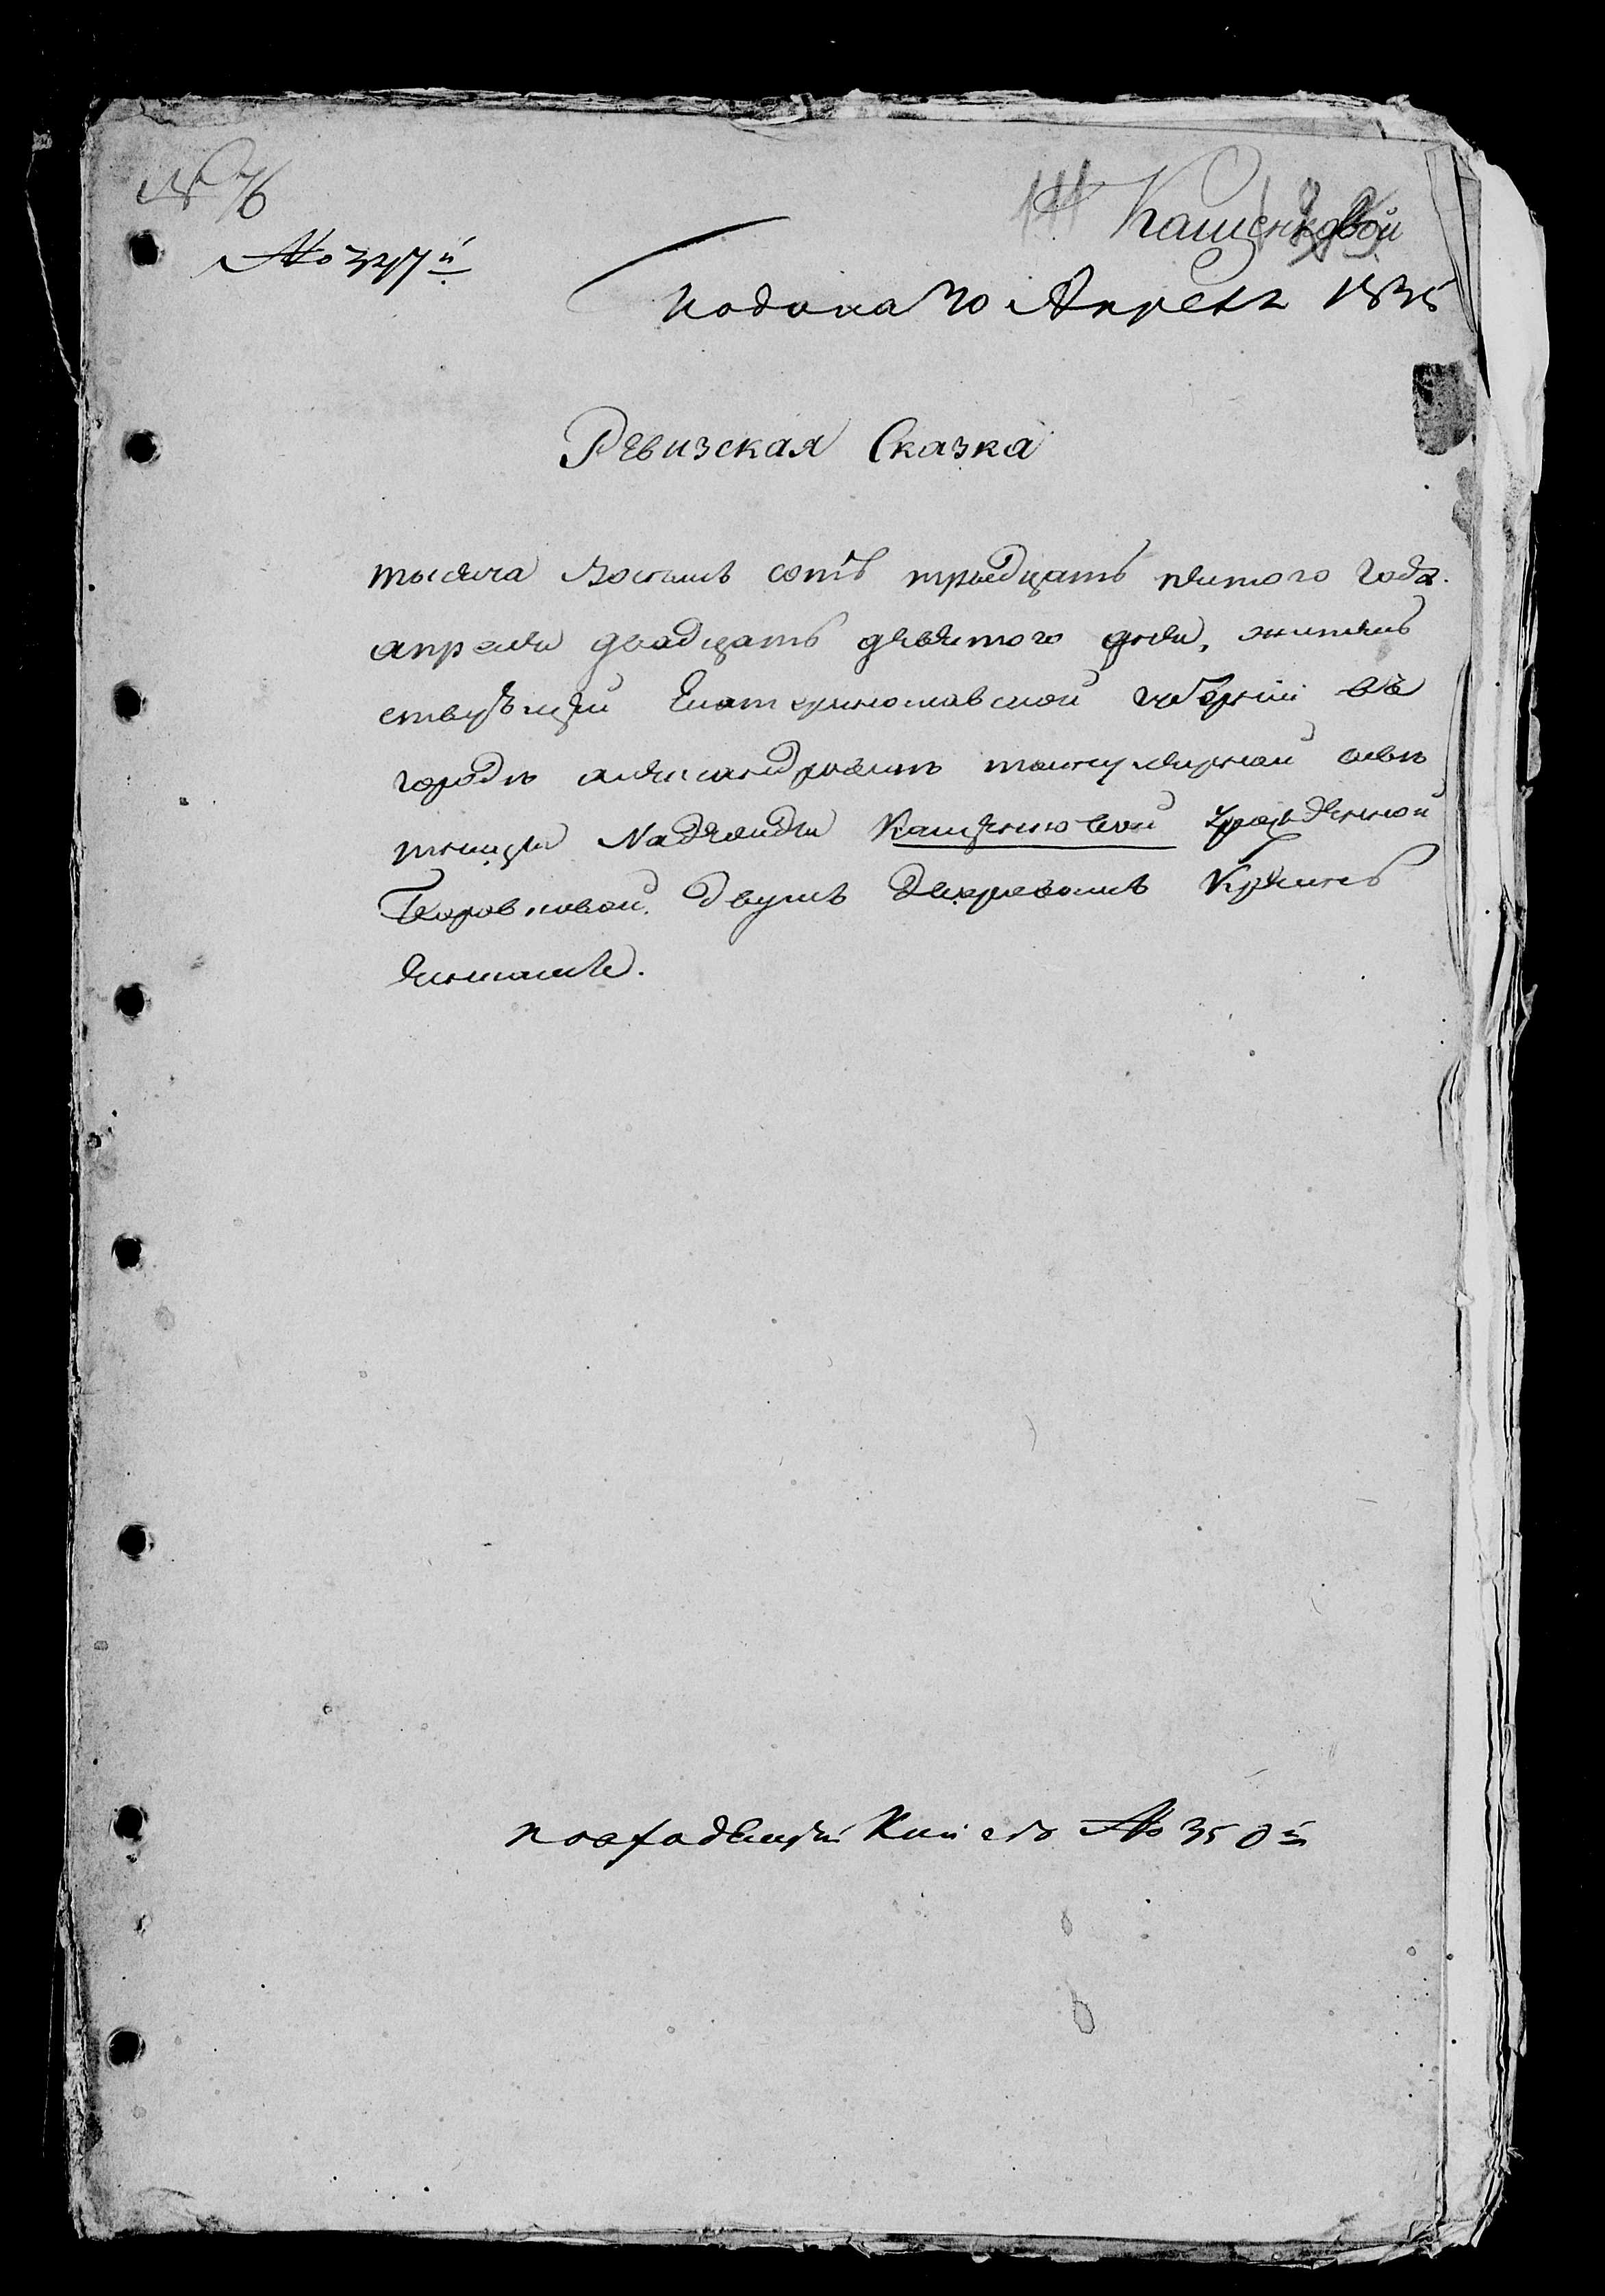 № 76
№ 347й
Кащенковой
Подана 30 Апреля 1835
Ревизская Сказка
тысяча восемь сотъ тридцать пятого года
апреля двадцать девятого дня, житель
ствующей Екатеринославской губерніи въ
городѣ александровскѣ титулярной совѣ
тницы Надежды Кащенковой урожденной
двумъ дворовымъ Крестья
по входящей Книге № 350й